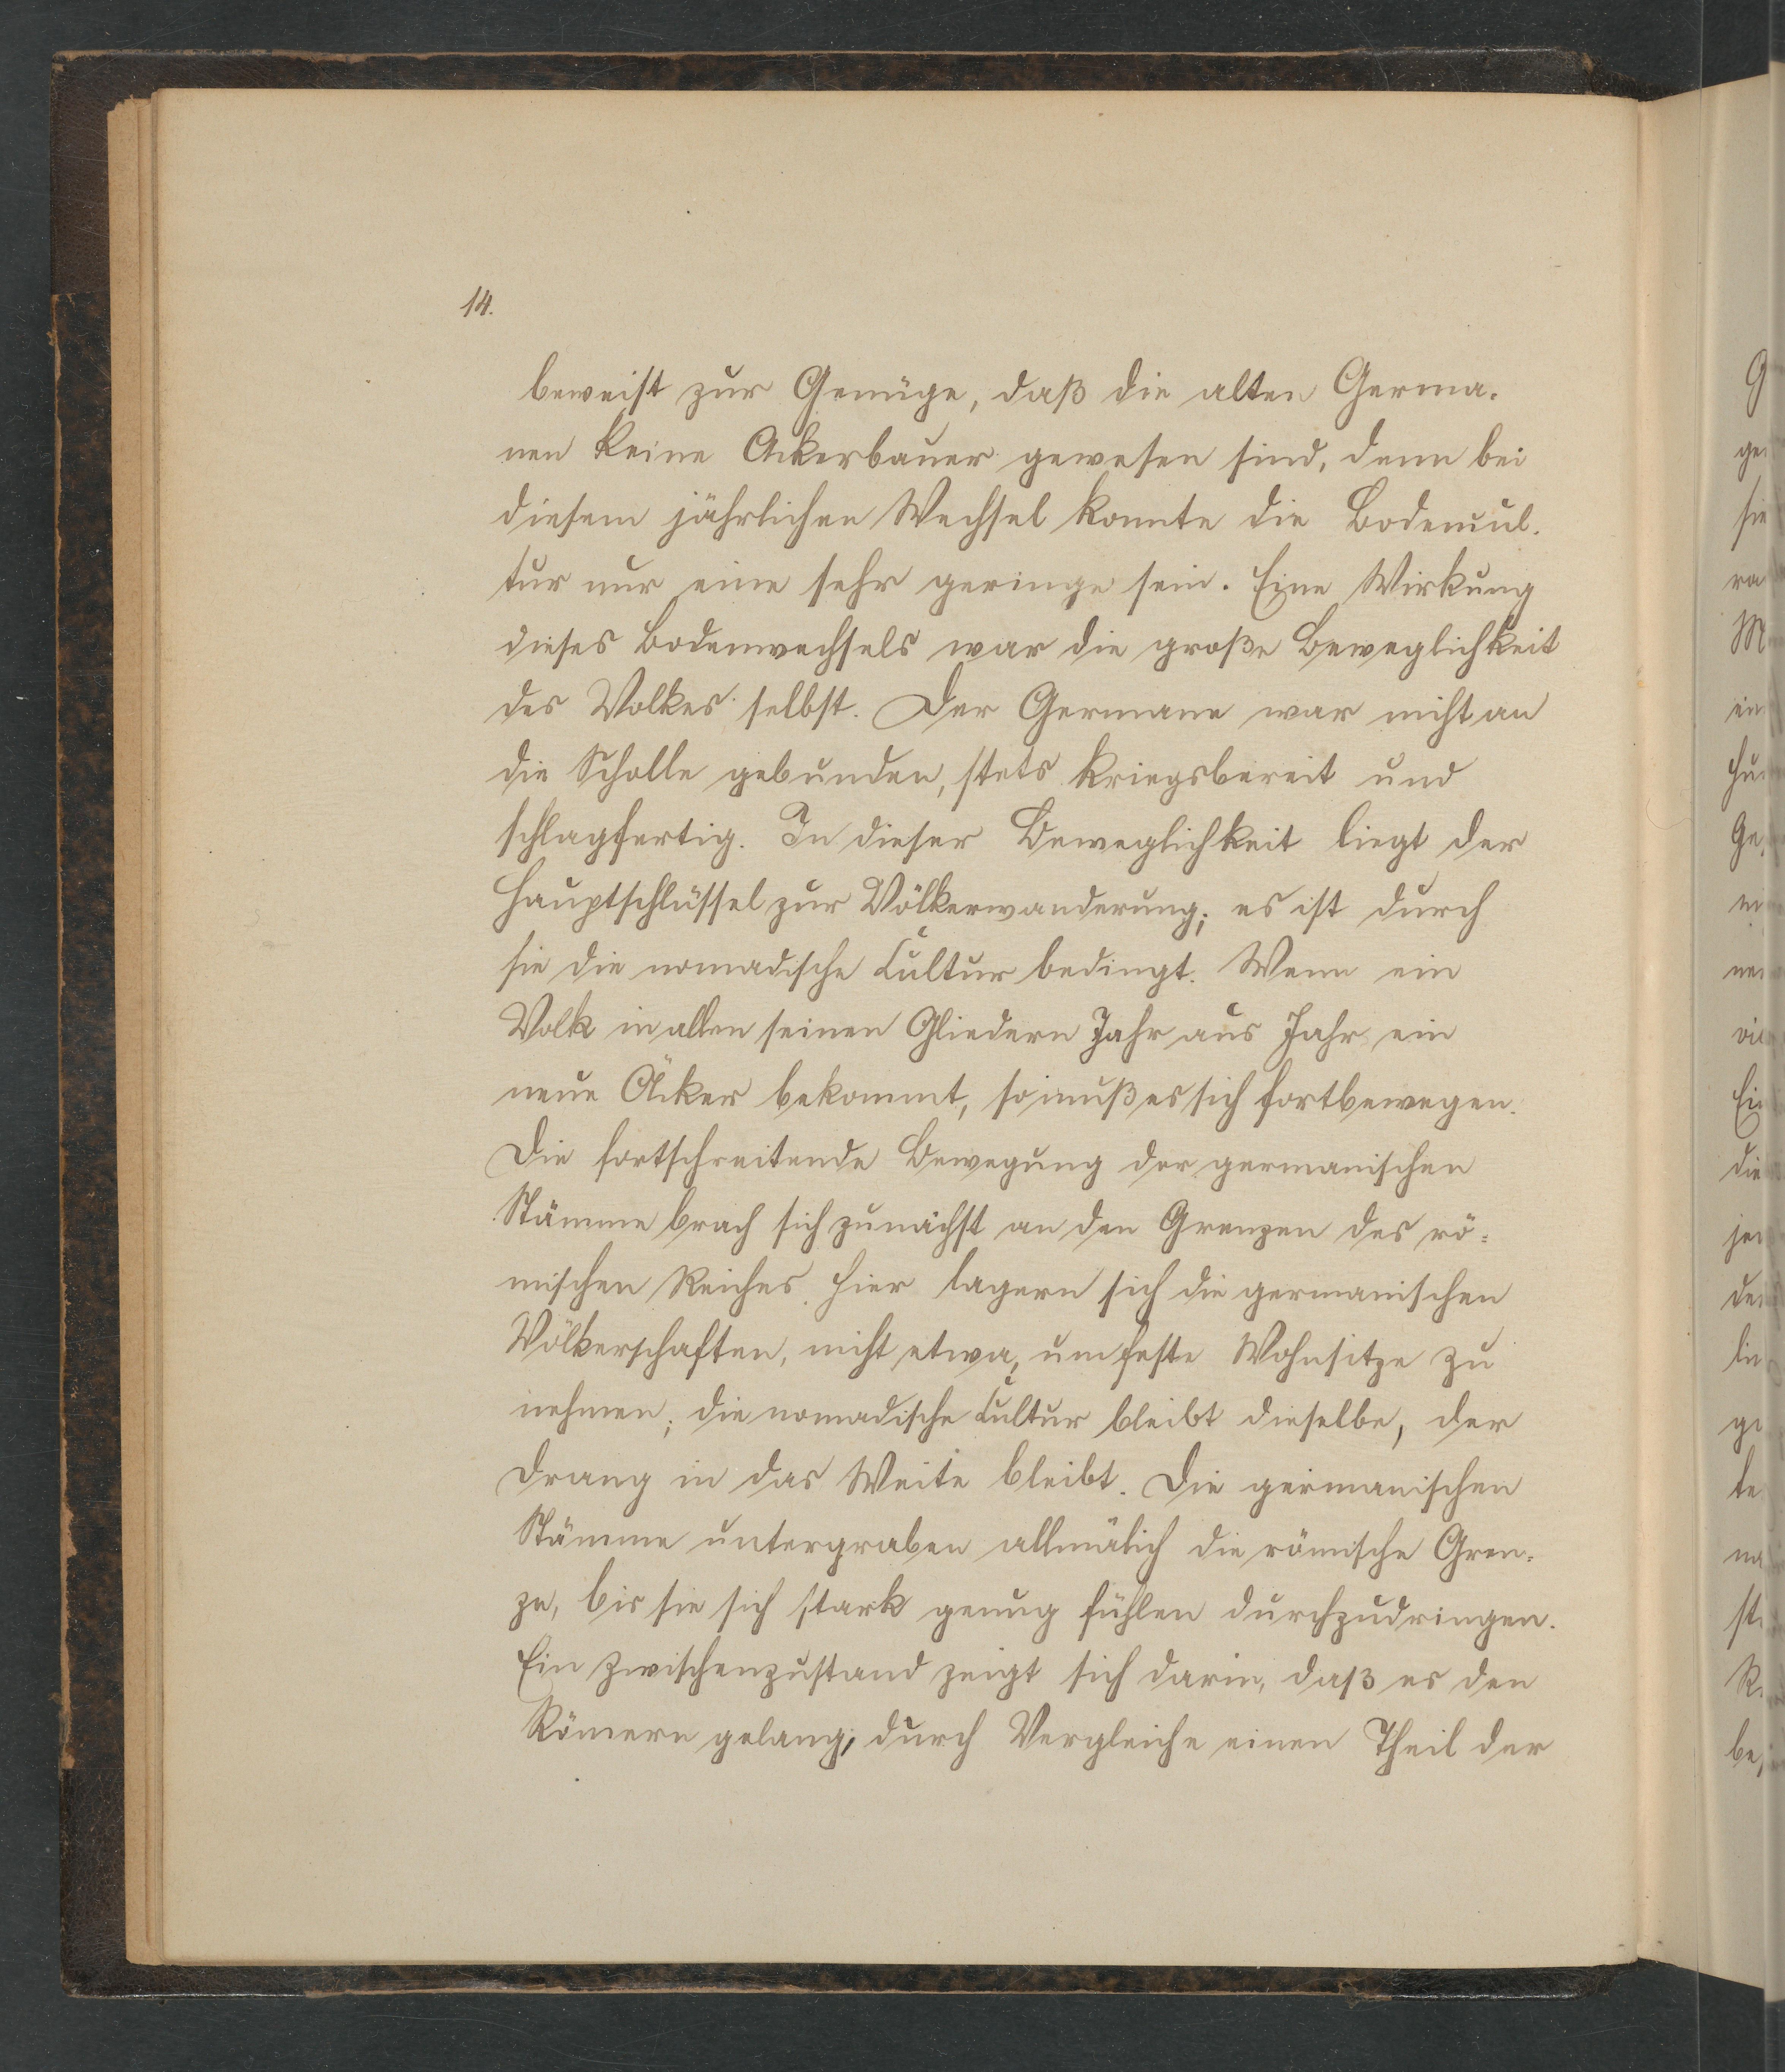 14.
beweist zur Genüge, daß die alten Germa-
nen keine Ackerbauer gewesen sind, denn bei
diesem jährlichen Wechsel konnte die Bodencul-
tur nur eine sehr geringe sein. Eine Wirkung
dieses Bodenwechsels war die große Beweglichkeit
des Volkes selbst. Der Germane war nicht an
die Scholle gebunden, stets kriegsbereit und
schlagfertig. In dieser Beweglichkeit liegt der
Hauptschlüssel zur Völkerwanderung; es ist durch
sie die nomadische Cultur bedingt. Wenn ein
Volk in allen seinen Gliedern Jahr aus Jahr ein
neue Äcker bekommt, so muß es sich fortbewegen.
Die fortschreitende Bewegung der germanischen
Stämme brach sich zunächst an den Grenzen des rö-
mischen Reiches. Hier lagern sich die germanischen
Völkerschaften, nicht etwa, um feste Wohnsitze zu
nehmen; die nomadische Cultur bleibt dieselbe, der
Drang in das Weite bleibt. Die germanischen
Stämme untergraben allmälich die römische Gren-
ze, bis sie sich stark genug fühlen durchzudringen.
Ein Zwischenzustand zeigt sich darin, daß es den
Römern gelang, durch Vergleiche einen Theil der